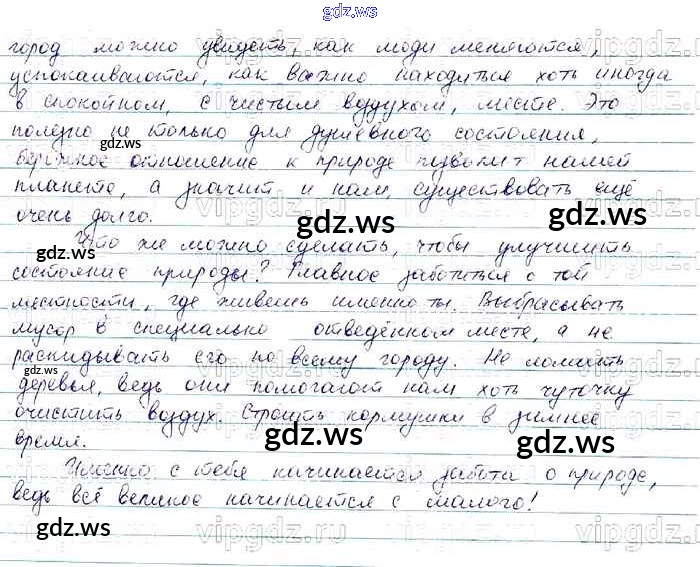 gdz.ws
город можно увидеть, как люди меняются,
успокаиваются, как важно находиться хоть иногда
в спокойном, с чистым воздухом, месте. Это
полезно не только для душевного состояния,
бережное отношение к природе позволит нашей
планете, а значит и нам, существовать ещё
очень долго.
Что же можно сделать, чтобы улучшить
состояние природы? Главное заботиться о той
местности, где живешь именно ты. Выбрасывать
мусор в специально отведённом месте, а не
раскидывать его по всему городу. Не ломать
деревья, ведь они помогают нам хоть чуточку
очистить воздух. Строить кормушки в зимнее
время.
Именно с тебя начинается забота о природе,
ведь всё великое начинается с малого!
gdz.ws
gdz.ws
gdz.ws
gdz.ws
gdz.ws
gdz.ws
gdz.ws
gdz.ws
gdz.ws